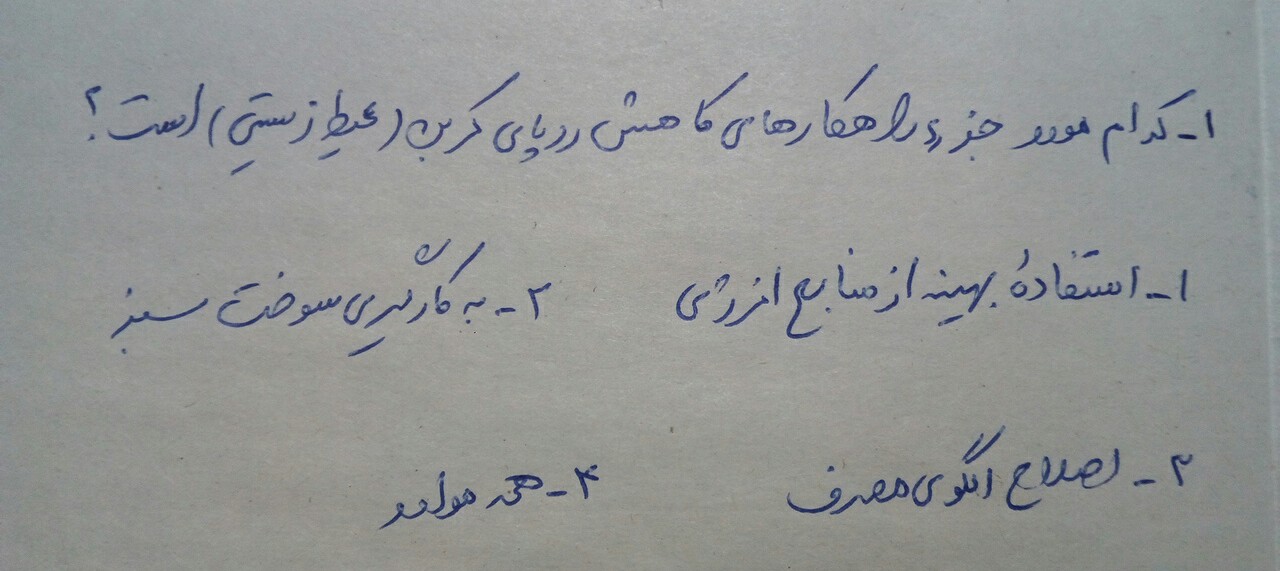 ۱- کدام مورد جزء راهکارهای کاهش ردپای کربن (محیط زیستی) است؟
۱- استفادهٔ بهینه از منابع انرژی ۲- به کارگیری سوخت سبز
۳- اصلاح الگوی مصرف ۴- همه موارد